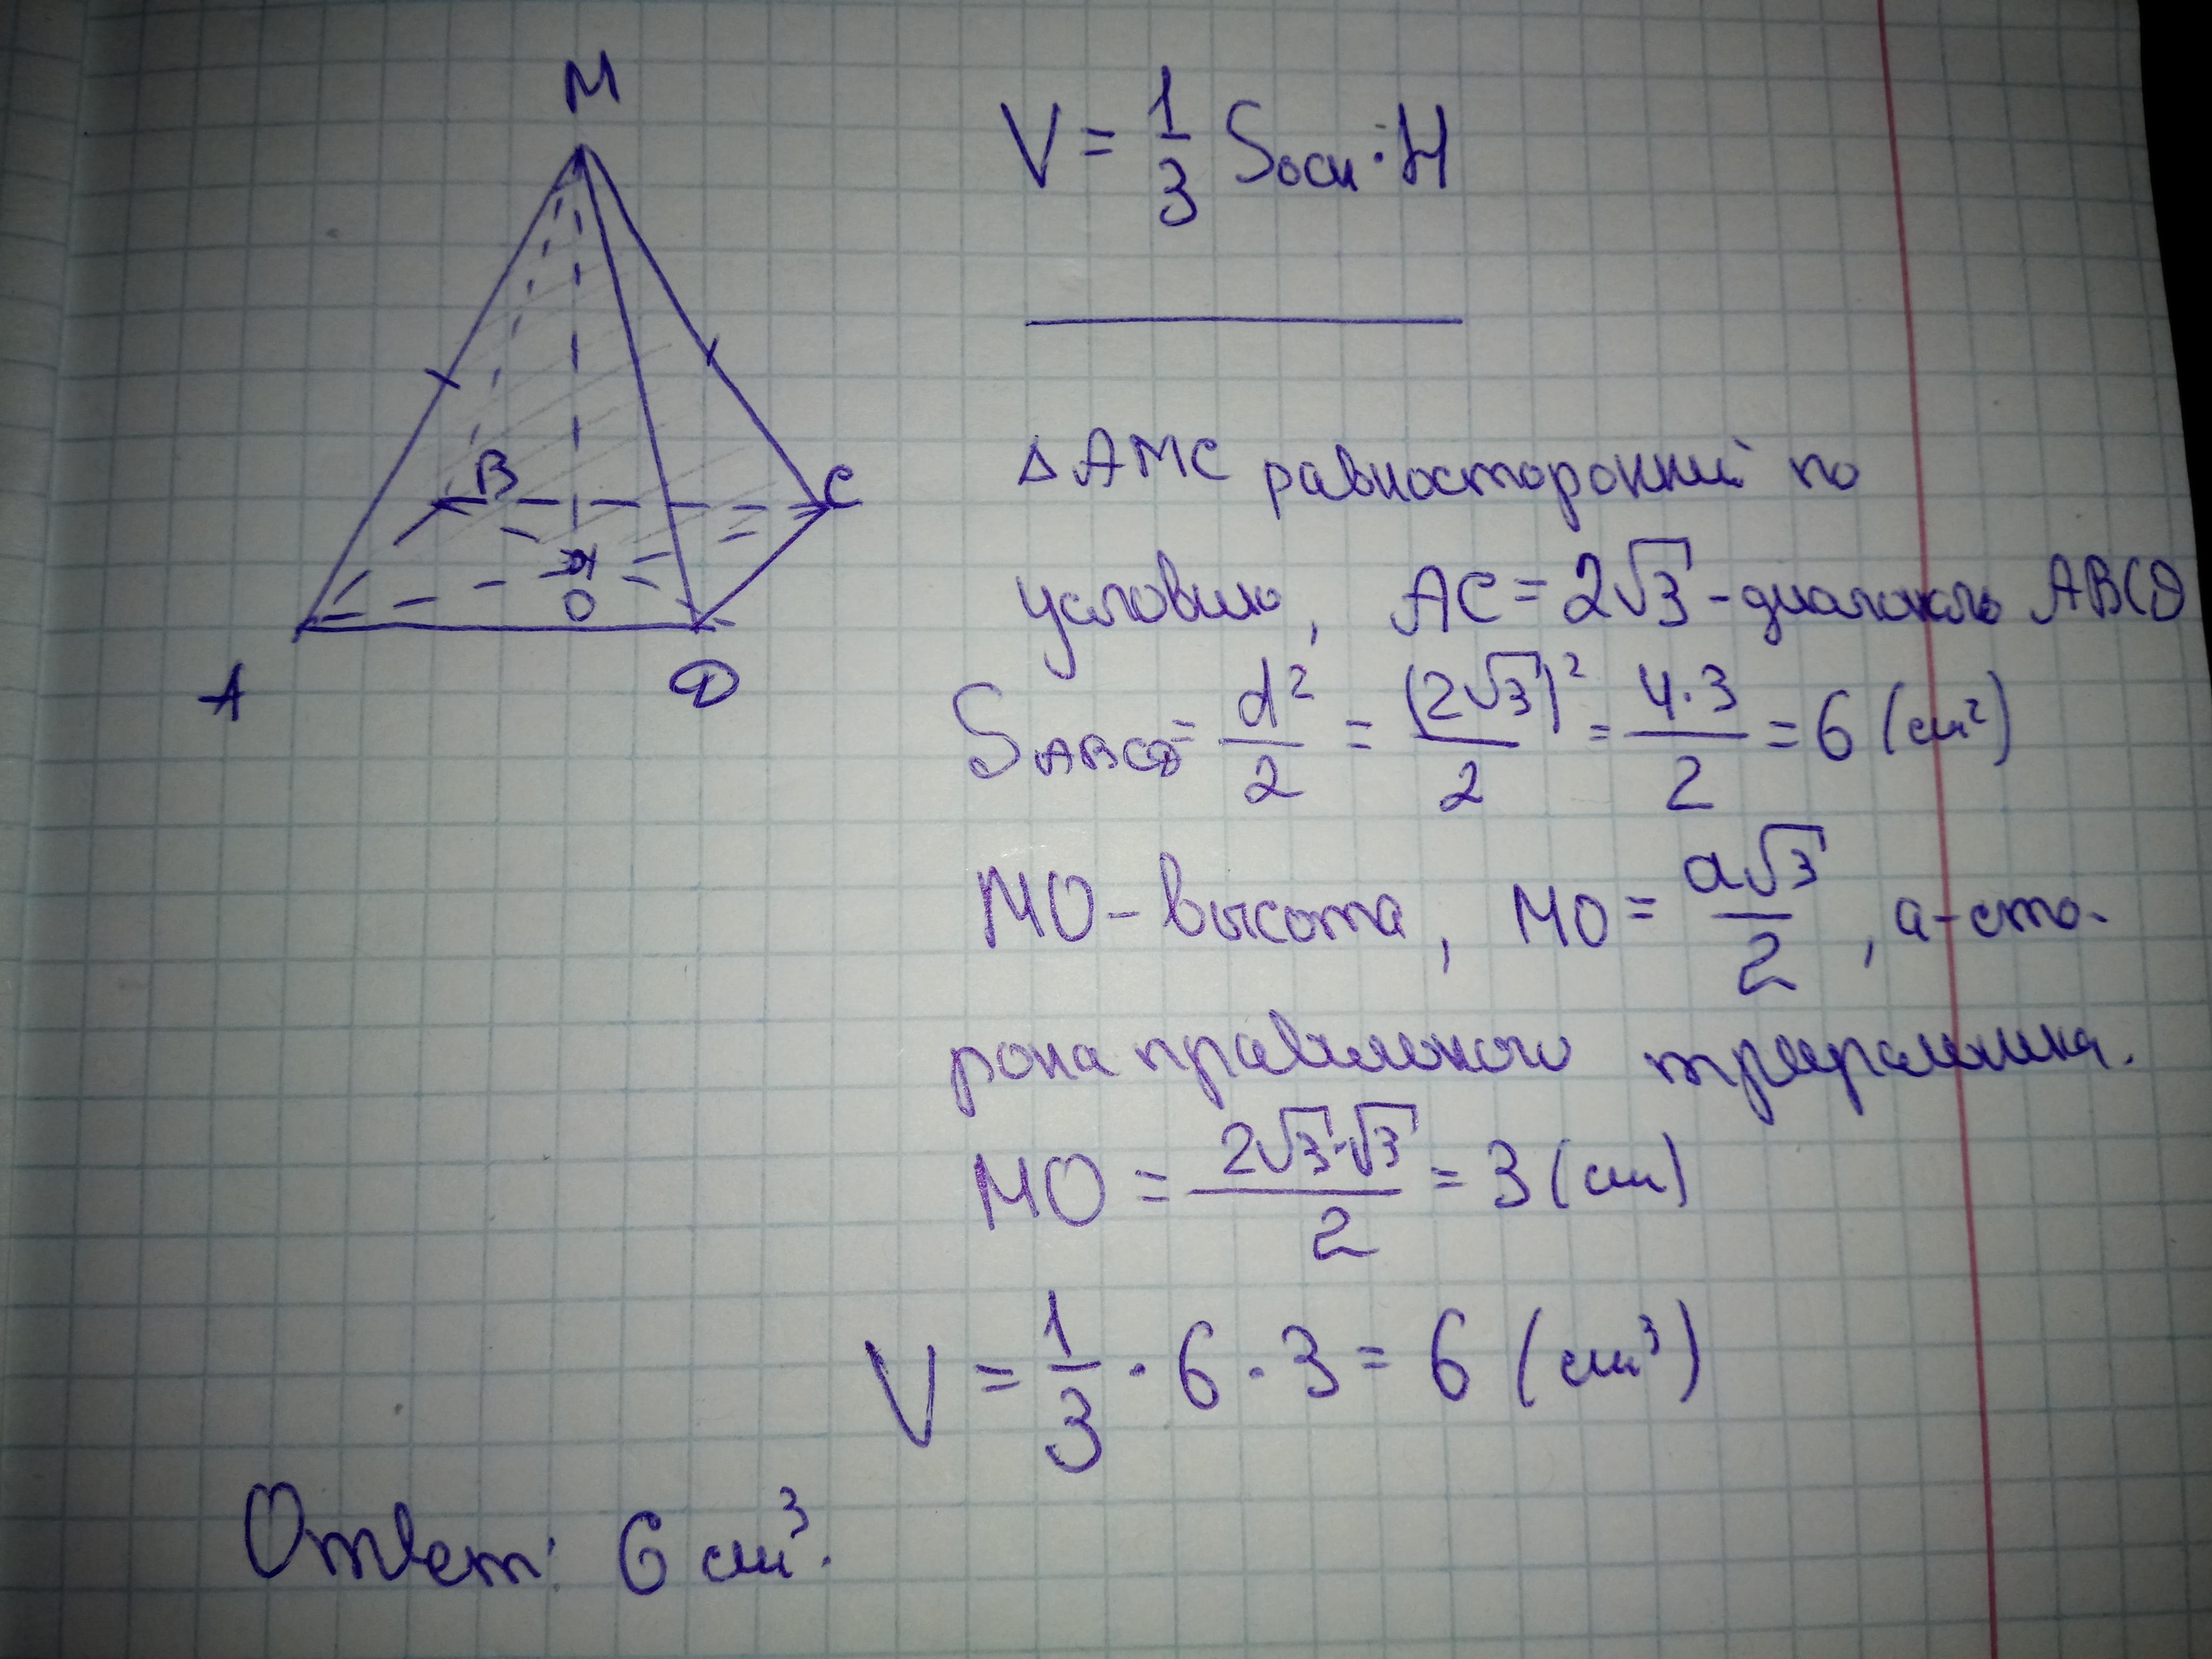 M
B
C
O
A
D
V = 1/3 Sосн · H
△AMC равносторонний по
условию, AC = 2√3 - диагональ ABCD
S ABCD = d²/2 = (2√3)²/2 = 4·3/2 = 6 (см²)
MO - высота, MO = a√3/2, a - сто-
рона правильного треугольника.
MO = 2√3·√3/2 = 3 (см)
V = 1/3 · 6 · 3 = 6 (см³)
Ответ: 6 см³.